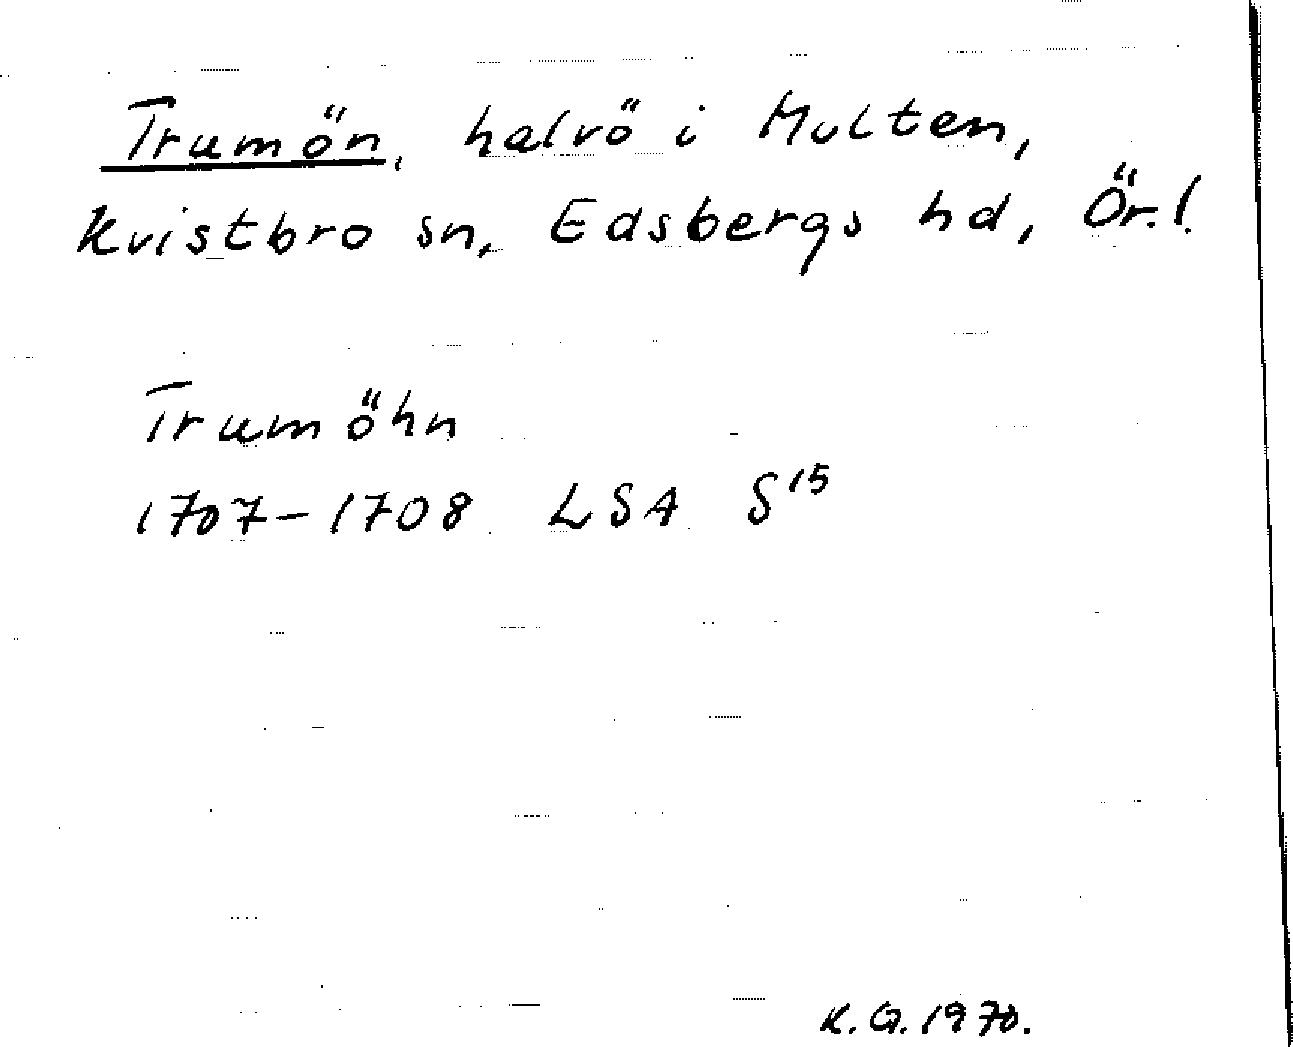 Trumön, halvö i Multen,
Kvistbro sn, Edsbergs hd, Ör. l.
Trumöhn
1707-1708 LSA S¹⁵
K.G. 1970.